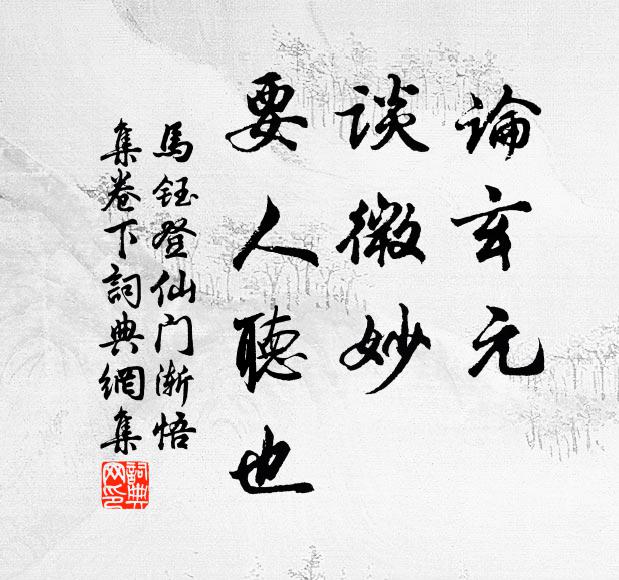 論玄元
谈微妙
要人聽也
馬鈺登仙门渐悟
集卷下詞典網集
詞典网印